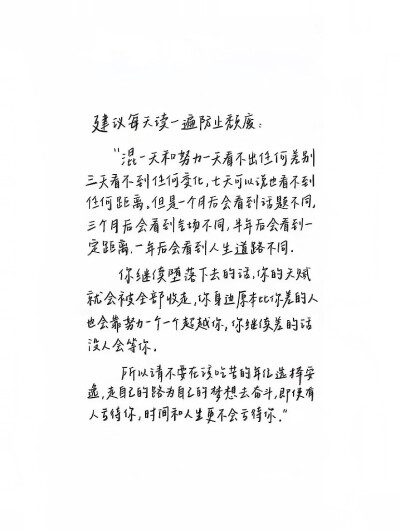 建议每天读一遍防止颓废:
“混一天和努力一天看不出任何差别
三天看不到任何变化,七天可以说也看不到
任何距离。但是一个月后会看到话题不同,
三个月后会看到气场不同,半年后会看到一
定距离,一年后会看到人生道路不同。
你继续堕落下去的话,你的天赋
就会被全部收走,你身边原本比你差的人
也会靠努力一个一个超越你,你继续差的话
没人会等你。
所以请不要在该吃苦的年纪选择安
逸,走自己的路为自己的梦想去奋斗,即使有
人亏待你,时间和人生更不会亏待你。”